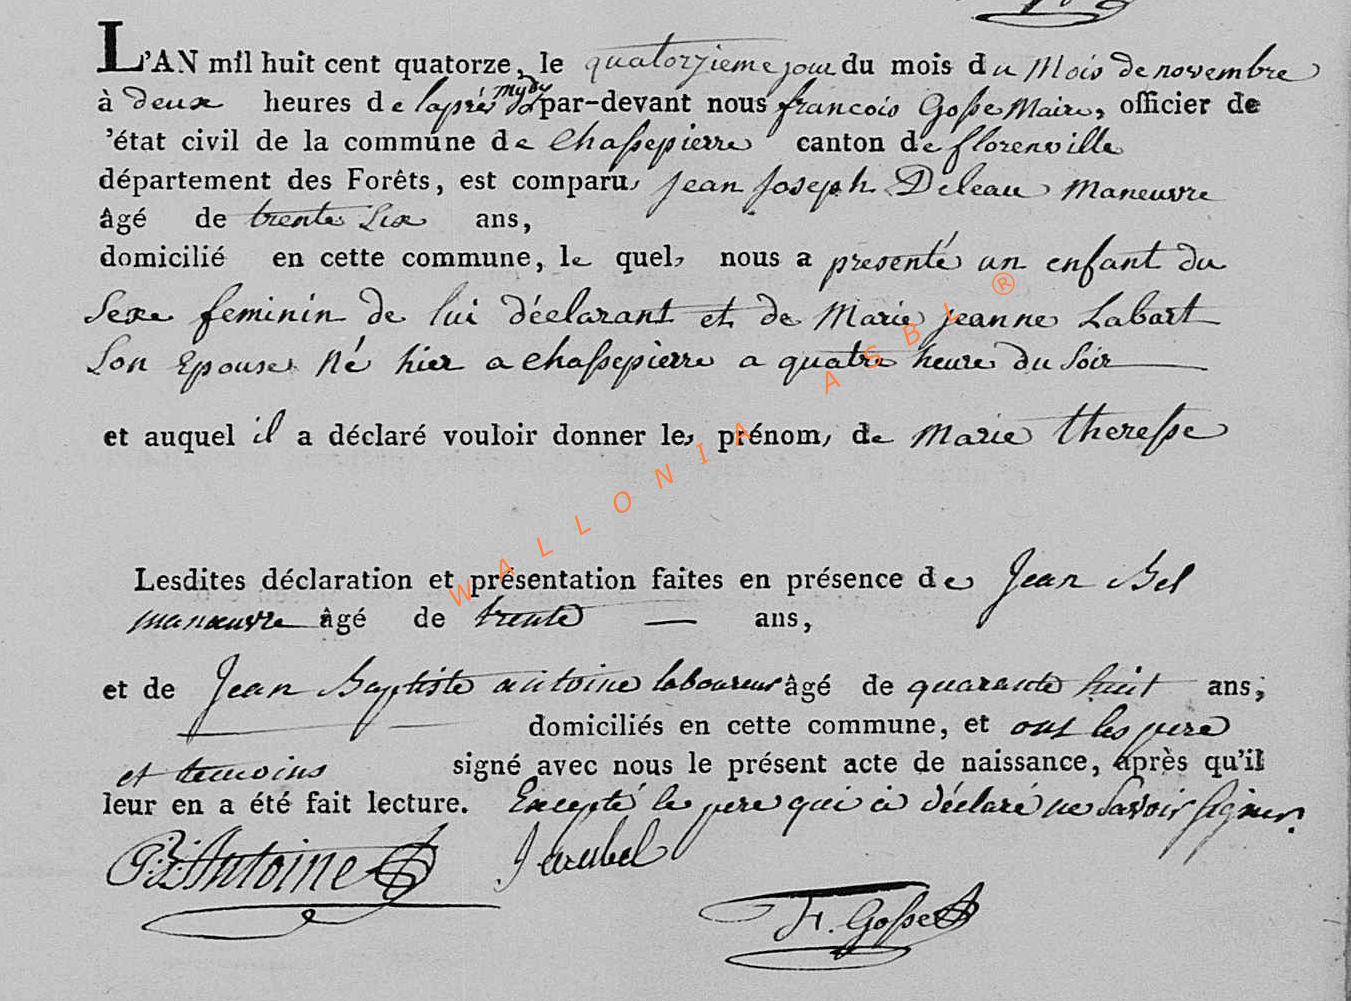 L'AN mil huit cent quatorze, le quatorzieme jour du mois du Mois de novembre
à deux heures de l'après mydy par-devant nous francois Gosse Maire, officier de
'état civil de la commune de Chassepierre canton de florenville
département des Forêts, est comparu, Jean Joseph Deleau Maneuvre
âgé de trente Six ans,
domicilié en cette commune, le quel, nous a presenté un enfant du
Sexe feminin de lui déclarant et de Marie Jeanne Labart
Son Epouse Né hier a Chassepierre a quatre heure du Soir
et auquel il a déclaré vouloir donner les prénom, de Marie theresse
Lesdites déclaration et présentation faites en présence de Jean Bel
manœuvre âgé de trente — ans,
et de Jean Baptiste antoine laboureur âgé de quarante huit ans,
domiciliés en cette commune, et ont les pere
et temoins signé avec nous le présent acte de naissance, après qu'il
leur en a été fait lecture. Excepté le pere qui a déclaré ne Savoir Signer.
J:B:Antoine Jeanbel
Fr. Gosse
WALLONIA ASBL ®